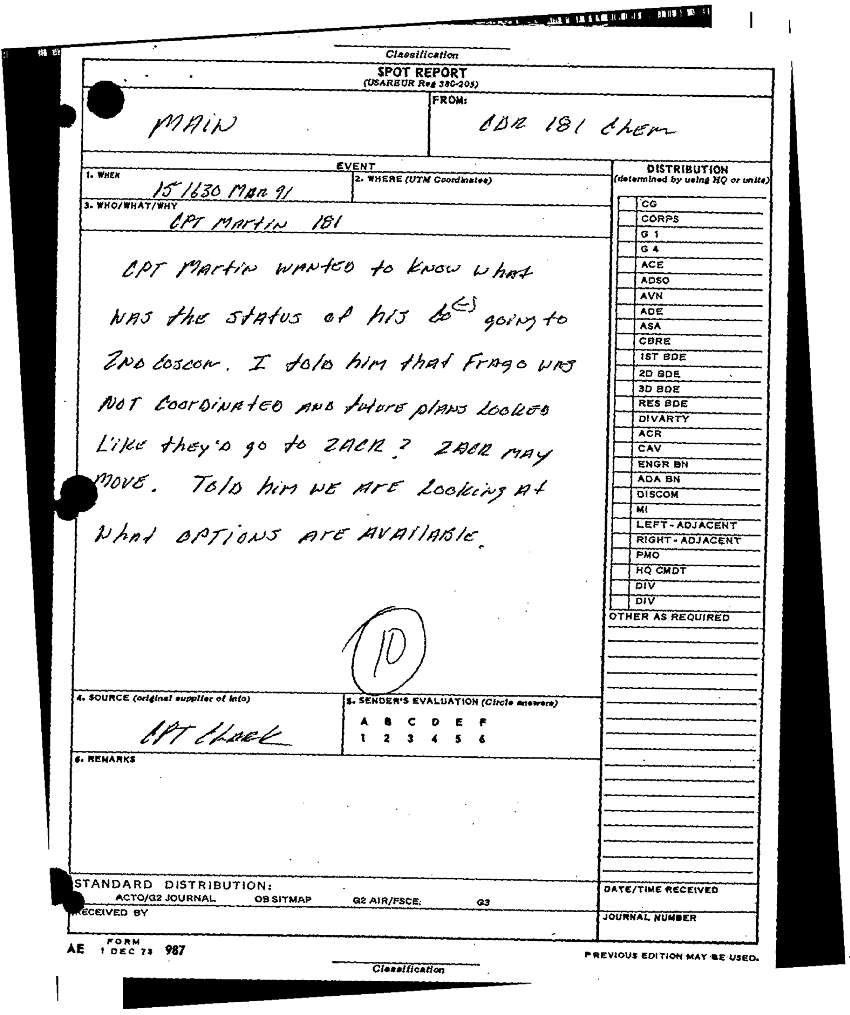 Classification
SPOT REPORT
(USAREUR Reg 380-205)
MAIN
FROM:
CDR 181 Chem
EVENT
DISTRIBUTION
(determined by using HQ or units)
1. WHEN
15 1630 Mar 91
2. WHERE (UTM Coordinates)
3. WHO/WHAT/WHY
CPT Martin 181
CPT Martin wanted to know what
was the status of his Co(-) going to
2nd Coscom. I told him that Frago was
not coordinated and future plans looked
like they'd go to 2ACR? 2ACR may
move. Told him we are looking at
what options are available.
10
CG
CORPS
G 1
G 4
ACE
ADSO
AVN
ADE
ASA
CBRE
1ST BDE
2D BDE
3D BDE
RES BDE
DIVARTY
ACR
CAV
ENGR BN
ADA BN
DISCOM
MI
LEFT-ADJACENT
RIGHT-ADJACENT
PMO
HQ CMDT
DIV
DIV
OTHER AS REQUIRED
4. SOURCE (original supplier of info)
CPT Clark
5. SENDER'S EVALUATION (Circle answers)
A B C D E F
1 2 3 4 5 6
6. REMARKS
STANDARD DISTRIBUTION:
ACTO/G2 JOURNAL OB SITMAP G2 AIR/FSCE: G3
RECEIVED BY
DATE/TIME RECEIVED
JOURNAL NUMBER
AE FORM 1 DEC 73 987
PREVIOUS EDITION MAY BE USED.
Classification